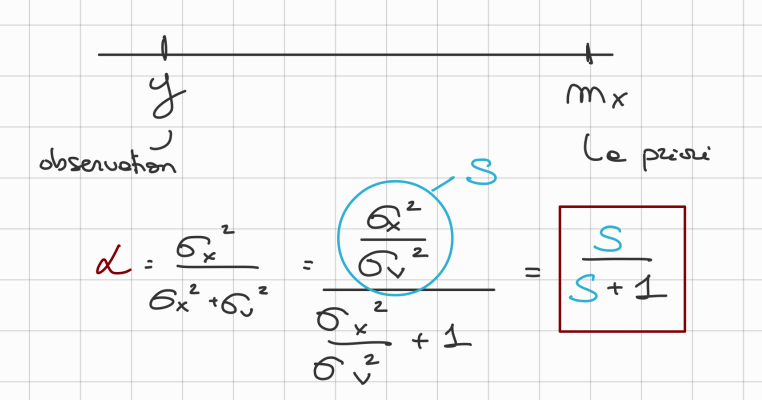 y mx
observation a priori
S
α = σx² / (σx² + σv²) = (σx² / σv²) / (σx² / σv² + 1) = S / (S + 1)